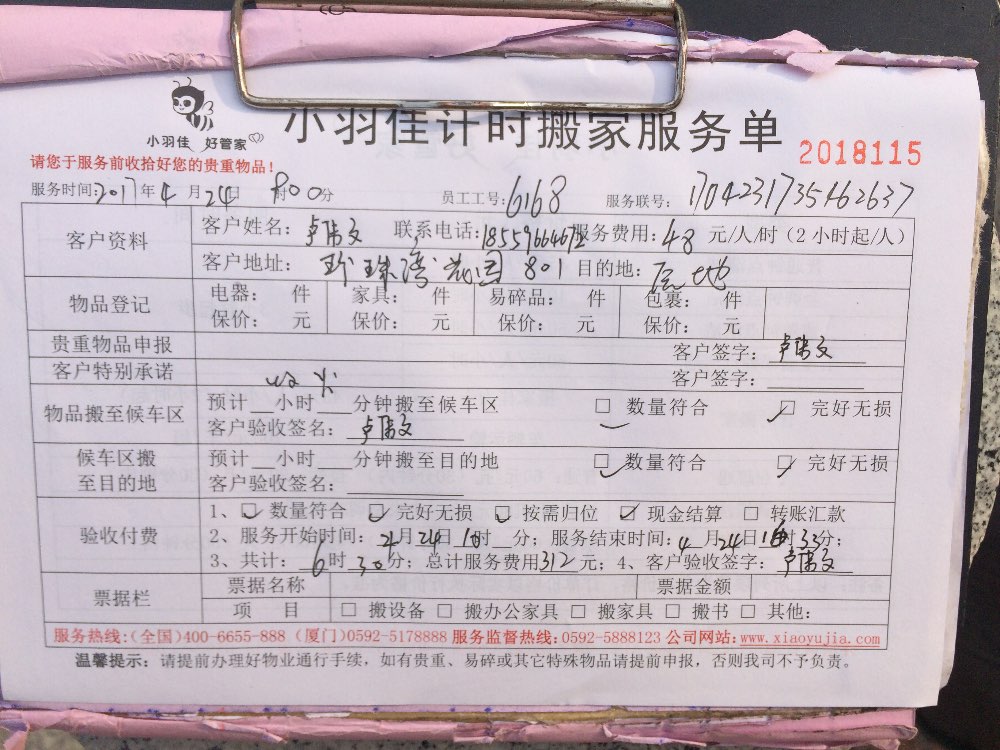 小羽佳 好管家
小羽佳计时搬家服务单
2018115
请您于服务前收拾好您的贵重物品!
服务时间:2017年4月24日 800分 员工工号:6168 服务联号:1704231735462637
客户资料 客户姓名: 卢伟文 联系电话: 服务费用:48 元/人/时(2小时起/人)
客户地址: 珍珠湾花园 801 目的地: 原地
物品登记 电器: 件 家具: 件 易碎品: 件 包裹: 件
保价: 元 保价: 元 保价: 元 保价: 元
贵重物品申报 客户签字: 卢伟文
客户特别承诺 客户签字:
物品搬至候车区 预计__小时__分钟搬至候车区 □ 数量符合 □ 完好无损
客户验收签名: 卢伟文
候车区搬至目的地 预计__小时__分钟搬至目的地 □ 数量符合 □ 完好无损
客户验收签名:
验收付费 1、□ 数量符合 □ 完好无损 □ 按需归位 □ 现金结算 □ 转账汇款
2、服务开始时间: 4月24日10时__分; 服务结束时间: 4月24日16时33分;
3、共计: 6时30分; 总计服务费用312元; 4、客户验收签字: 卢伟文
票据栏 票据名称 票据金额
项 目 □ 搬设备 □ 搬办公家具 □ 搬家具 □ 搬书 □ 其他:
服务热线:(全国)400-6655-888 (厦门)0592-5178888 服务监督热线:0592-5888123 公司网站:www.xiaoyujia.com
温馨提示: 请提前办理好物业通行手续,如有贵重、易碎或其它特殊物品请提前申报,否则我司不予负责。